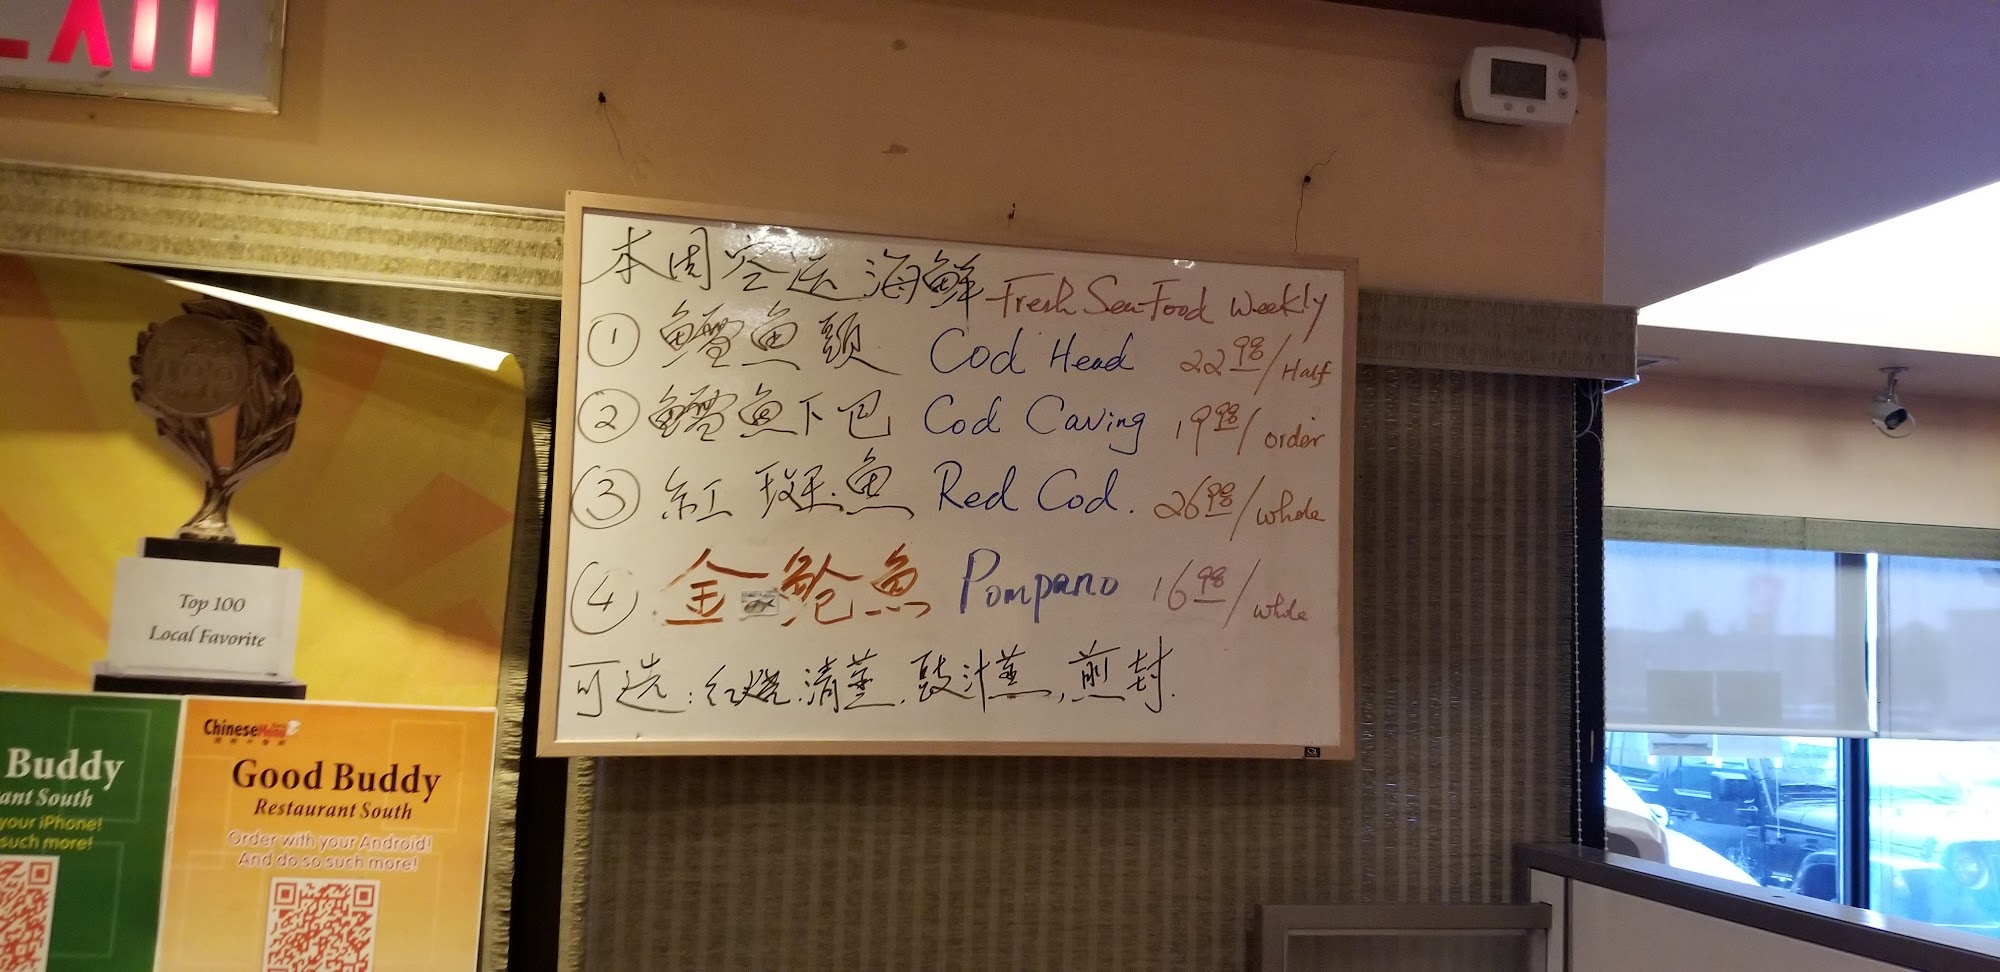 EXIT
本周空运海鲜 Fresh Sea Food Weekly
① 鱈魚頭 Cod Head 22.98/Half
② 鱈魚下巴 Cod Caving 19.98/order
③ 紅斑魚 Red Cod. 26.98/whole
④ 金鲳魚 Pompano 16.98/whole
可选:红烧.清蒸.豉汁蒸,煎封.
Top 100
Local Favorite
Buddy
ant South
your iPhone!
such more!
ChineseMenu
Good Buddy
Restaurant South
Order with your Android!
And do so such more!